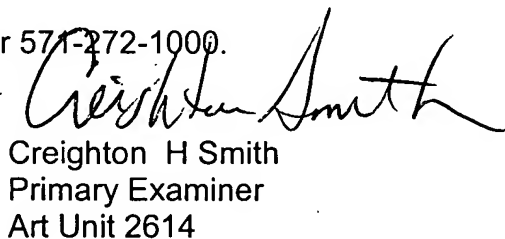 r 571-272-1000.
Creighton Smith
Creighton H Smith
Primary Examiner
Art Unit 2614